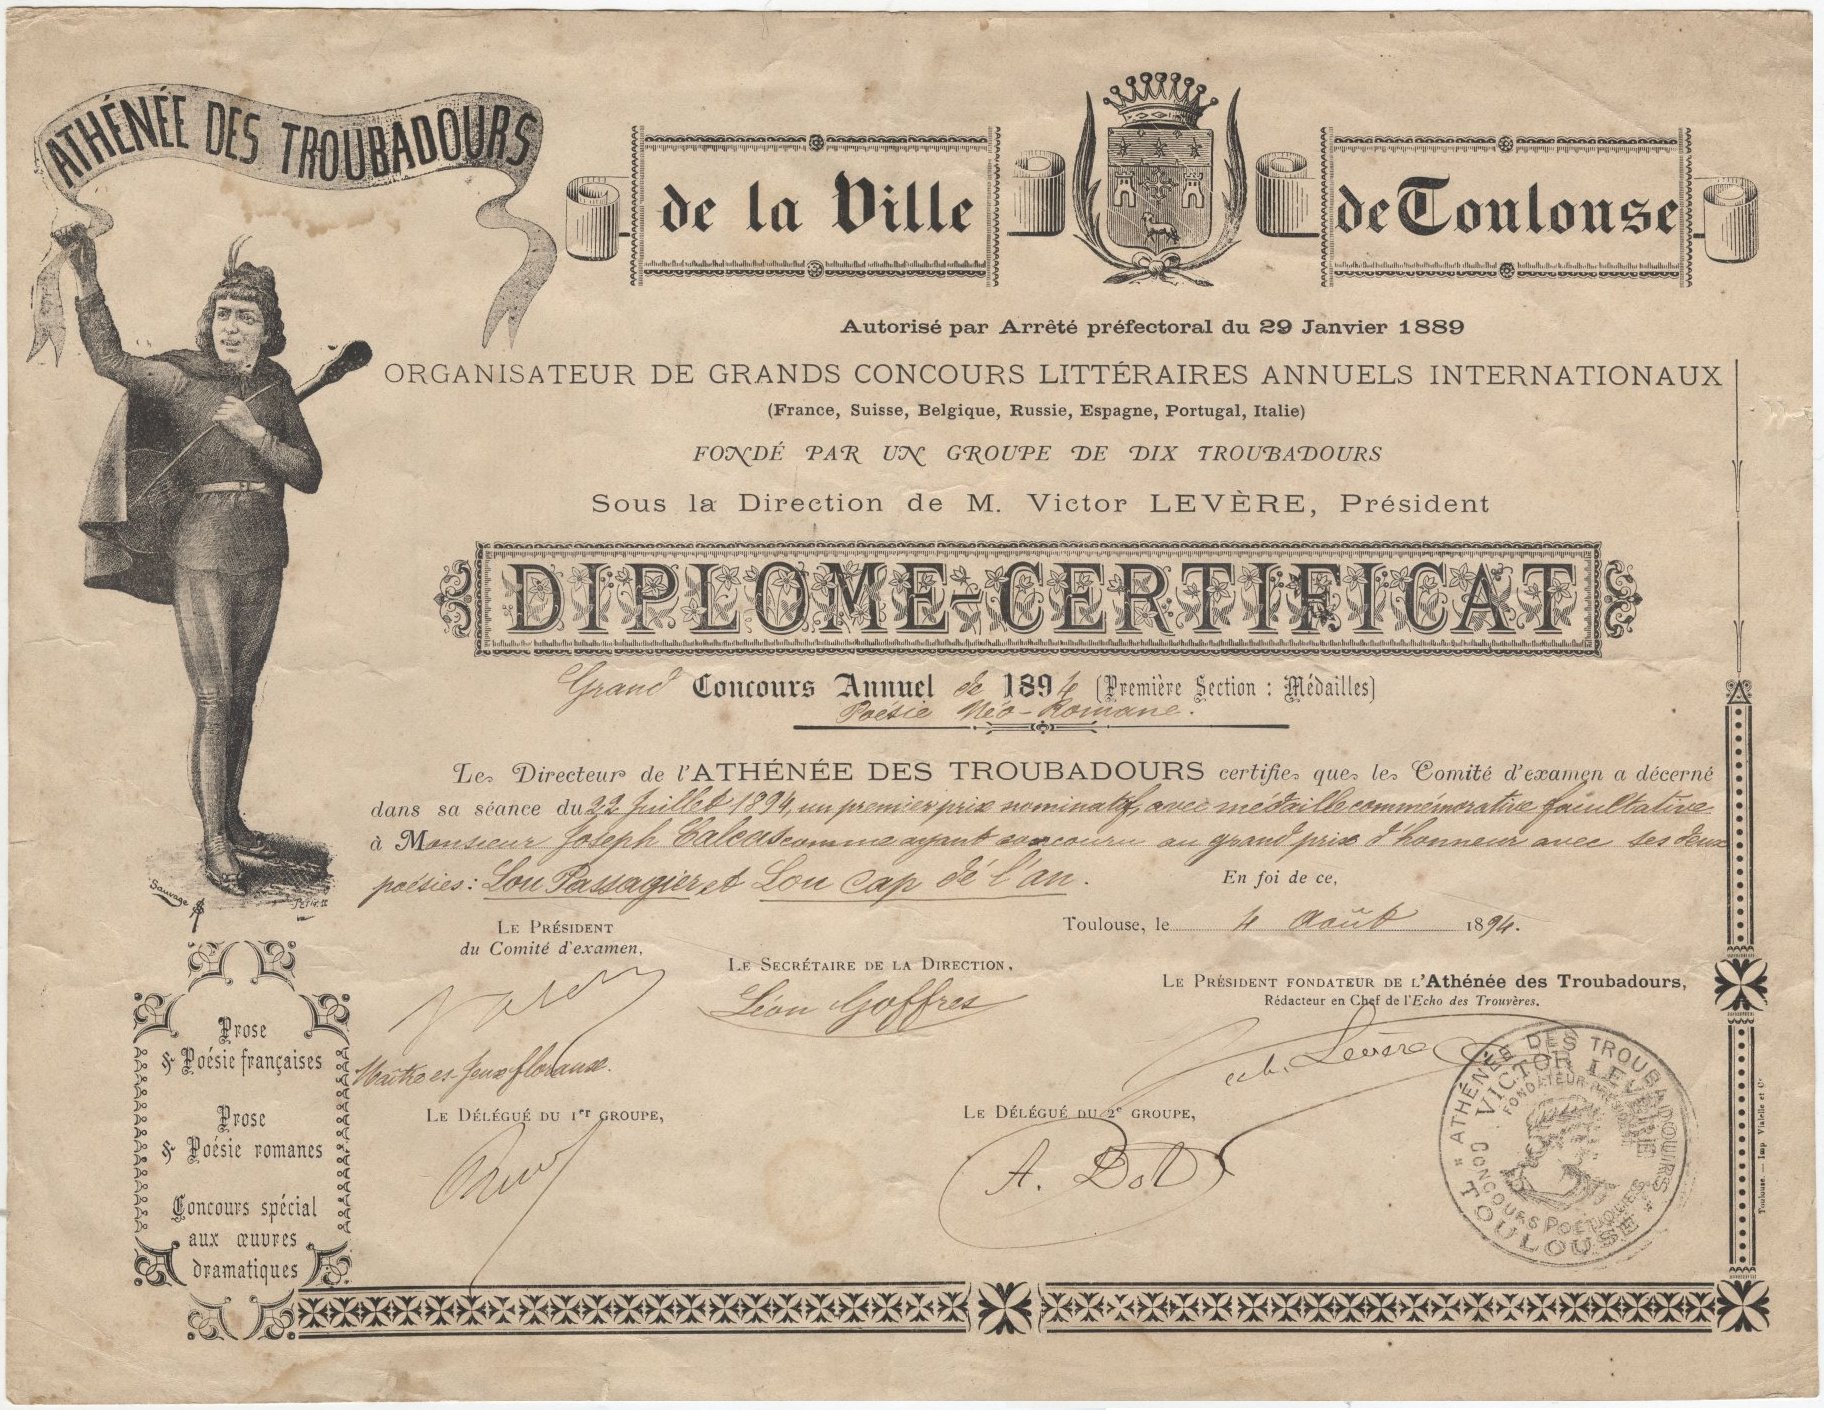 ATHÉNÉE DES TROUBADOURS
de la Ville de Toulouse
Autorisé par Arrêté préfectoral du 29 Janvier 1889
ORGANISATEUR DE GRANDS CONCOURS LITTÉRAIRES ANNUELS INTERNATIONAUX
(France, Suisse, Belgique, Russie, Espagne, Portugal, Italie)
FONDÉ PAR UN GROUPE DE DIX TROUBADOURS
Sous la Direction de M. Victor LEVÈRE, Président
DIPLOME-CERTIFICAT
Grand Concours Annuel de 1894 (Première Section : Médailles)
Poésie Néo-Romane.
Le Directeur de l'ATHÉNÉE DES TROUBADOURS certifie que le Comité d'examen a décerné
dans sa séance du 22 Juillet 1894, un premier prix nominatif, avec médaille commémorative facultative
à Monsieur Joseph Calcas comme ayant concouru au grand prix d'honneur avec ses deux
poésies : Lou Passagier et Lou Cap dé l'an.
En foi de ce,
Toulouse, le 4 Août 1894.
LE PRÉSIDENT
du Comité d'examen,
Maître es Jeux floraux.
LE SECRÉTAIRE DE LA DIRECTION,
Léon Goffres
LE PRÉSIDENT FONDATEUR DE L'Athénée des Troubadours,
Rédacteur en Chef de l'Echo des Trouvères.
Levère
LE DÉLÉGUÉ DU 1er GROUPE,
LE DÉLÉGUÉ DU 2e GROUPE,
A. Bot
ATHÉNÉE DES TROUBADOURS
VICTOR LEVÈRE
FONDATEUR PRÉSIDENT
CONCOURS POÉTIQUES
TOULOUSE
Sauvage
Prose
& Poésie françaises
Prose
& Poésie romanes
Concours spécial
aux œuvres
dramatiques
Toulouse. — Imp. Vialelle et Cie